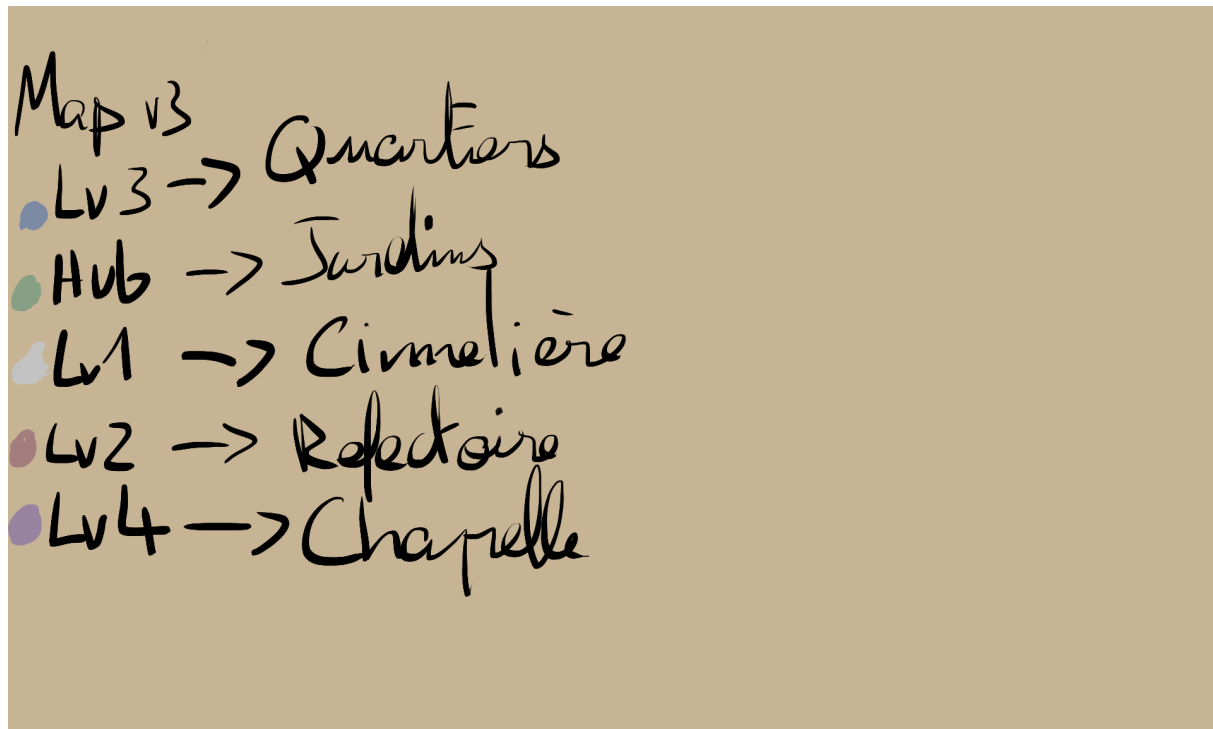 Map v3
Lv3 -> Quartiers
Hub -> Jardins
Lv1 -> Cimetière
Lv2 -> Refectoire
Lv4 -> Chapelle